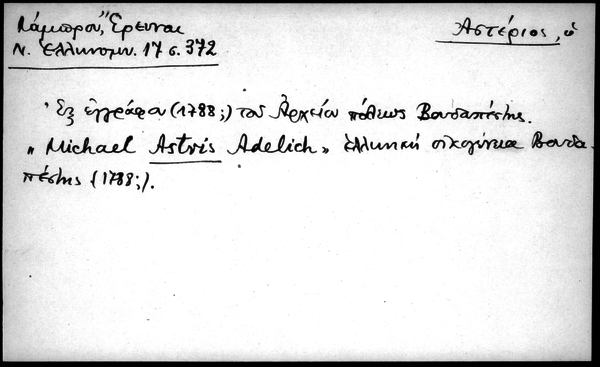 Λάμπρου, Ἔρευναι
Ν. Ἑλληνομν. 17 σ. 372
Ἀστέριος, ὁ
Ἐξ ἐγγράφου (1788;) τοῦ Ἀρχείου πόλεως Βουδαπέστης.
"Michael Astris Adelich" ἑλληνική οἰκογένεια Βουδα-
πέστης (1788;).